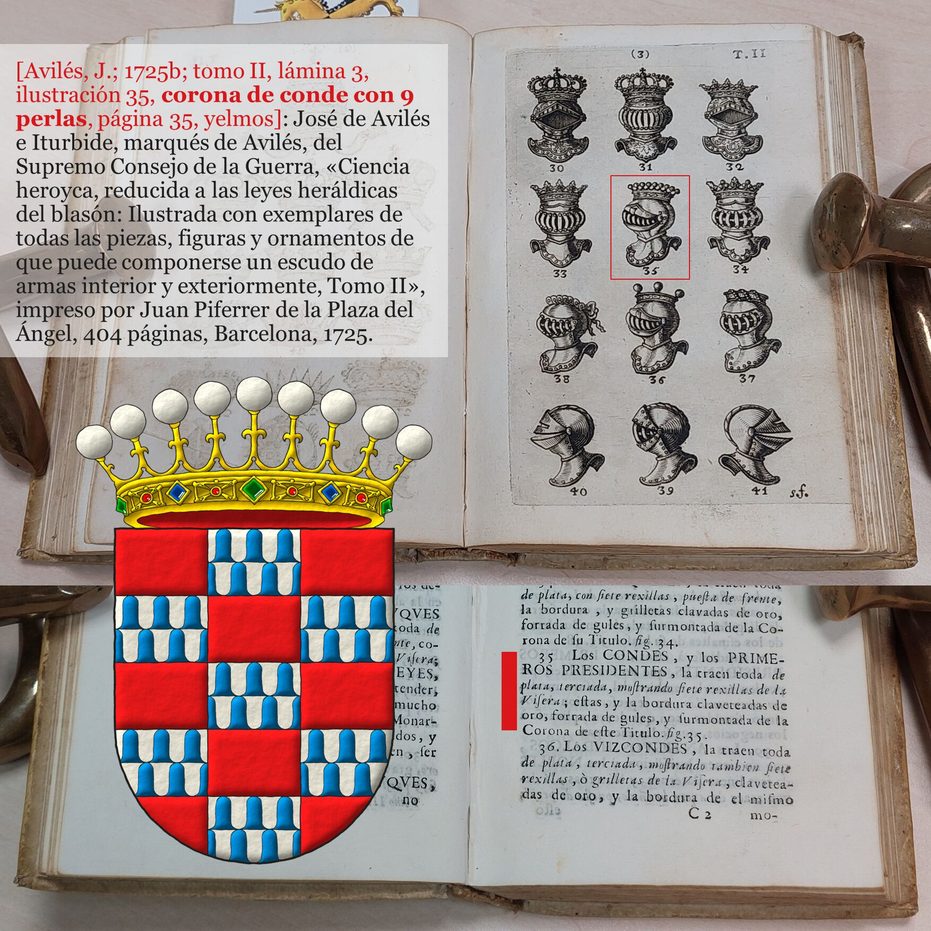 [Avilés, J.; 1725b; tomo II, lámina 3,
ilustración 35, corona de conde con 9
perlas, página 35, yelmos]: José de Avilés
e Iturbide, marqués de Avilés, del
Supremo Consejo de la Guerra, «Ciencia
heroyca, reducida a las leyes heráldicas
del blasón: Ilustrada con exemplares de
todas las piezas, figuras y ornamentos de
que puede componerse un escudo de
armas interior y exteriormente, Tomo II»,
impreso por Juan Piferrer de la Plaza del
Ángel, 404 páginas, Barcelona, 1725.
(3) T.II
30 31 32
33 35 34
38 36 37
40 39 41 s.f.
YQVES
toda de
Visera;
EYES,
tender;
mucho
Monar-
dos, y
en, ser
QVES,
no
de plata, con siete rexillas, puesta de frente,
la bordura, y grilletas clavadas de oro,
forrada de gules, y surmontada de la Co-
rona de su Titulo. fig. 34.
35 Los CONDES, y los PRIME-
ROS PRESIDENTES, la traen toda de
plata, terciada, mostrando siete rexillas de la
Visera; estas, y la bordura claveteadas de
oro, forrada de gules, y surmontada de la
Corona de este Titulo. fig. 35.
36. Los VIZCONDES, la traen toda
de plata, terciada, mostrando tambien siete
rexillas, ò grilletas de la Visera, clavetea-
das de oro, y la bordura de el mismo
C 2 mo-